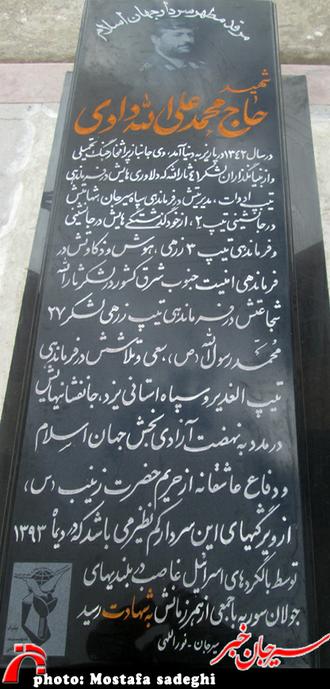 مرقد مطهر سردار جهان اسلام
شهید
حاج محمد علی الله دادی
در سال ۱۳۴۲ در پاریز به دنیا آمد، وی جانباز پر افتخار جنگ تحمیلی
و از بنیانگذاران لشکر ۴۱ ثارالله که دلاوری هایش در فرماندهی
تیپ ادوات، مدیریتش در فرماندهی سپاه سیرجان، شهامتش
در جانشینی تیپ ۲، از خودگذشتگی هایش در جانشینی
و فرماندهی تیپ ۳ زرهی، هوش و ذکاوتش در
فرماندهی امنیت جنوب شرق کشور در لشکر ثارالله
شجاعتش در فرماندهی تیپ زرهی لشکر ۲۷
محمد رسول الله (ص)، سعی و تلاشش در فرماندهی
تیپ الغدیر و سپاه استانی یزد، جانفشانیهایش
در مدد به نهضت آزادی بخش جهان اسلام
و دفاع عاشقانه از حریم حضرت زینب (س)،
از ویژگیهای این سردار کم نظیر می باشد که در دیماه ۱۳۹۳
توسط بالگردهای اسرائیل غاصب در بلندیهای
جولان سوریه با جمعی از همرزمانش به شهادت رسید
سیرجان -
سیرجان خبر
photo: Mostafa sadeghi